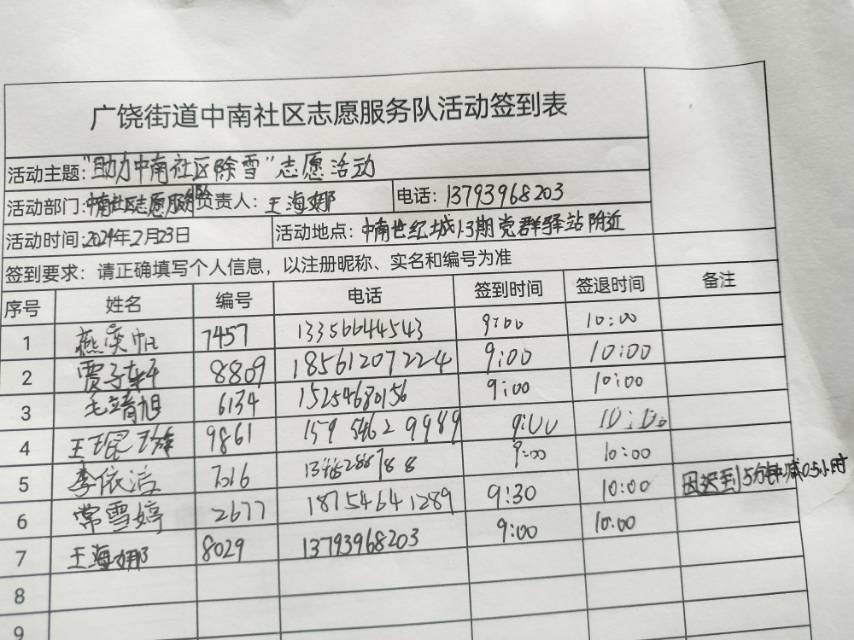 广饶街道中南社区志愿服务队活动签到表
活动主题:"助力中南社区除雪"志愿活动
活动部门:中南社区志愿服务队 负责人: 王海娜 电话: 13793968203
活动时间:2024年2月23日 活动地点: 中南世纪城1.3期党群驿站附近
签到要求: 请正确填写个人信息, 以注册昵称、实名和编号为准
序号 姓名 编号 电话 签到时间 签退时间 备注
1 燕奕帆 7457 13356644543 9:00 10:00
2 贾子轩 8809 18561207224 9:00 10:00
3 毛靖旭 6134 15254680156 9:00 10:00
4 王琨 9861 15954629989 9:00 10:00
5 李依洁 7316 9:00 10:00
6 常雪婷 2677 18754641289 9:30 10:00 因迟到15分钟减0.5小时
7 王海娜 8029 13793968203 9:00 10:00
8
9